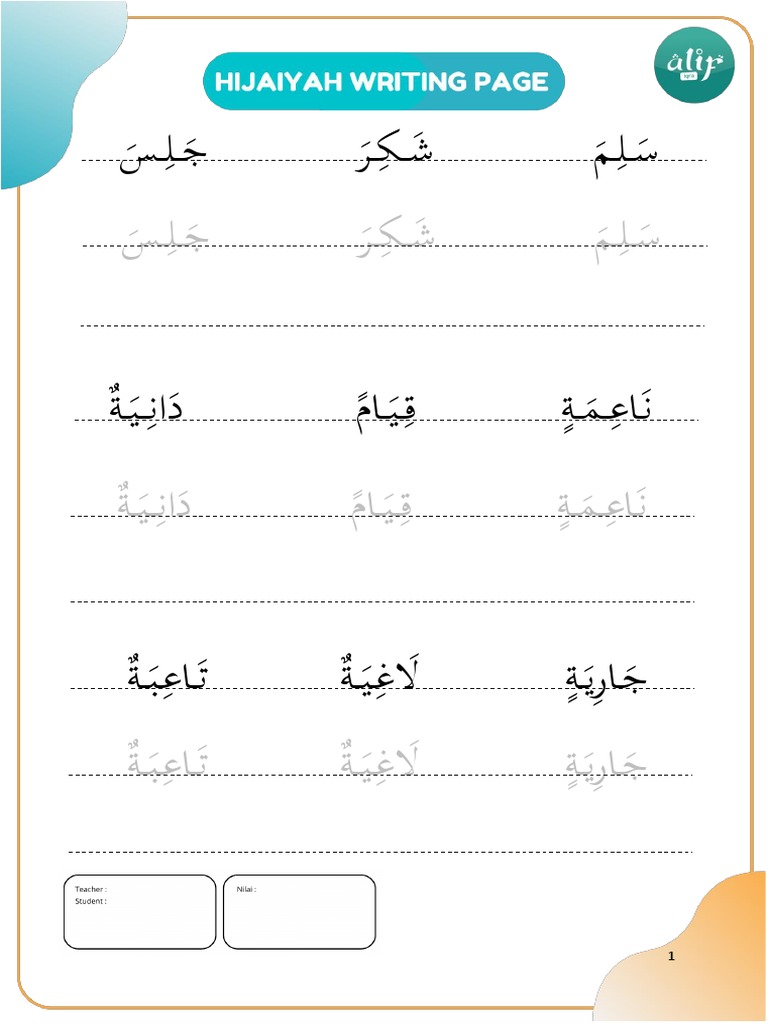 HIJAIYAH WRITING PAGE
alif
iqro
سَلِمَ شَكِرَ جَلِسَ
سَلِمَ شَكِرَ جَلِسَ
نَاعِمَةٍ قِيَامً دَانِيَةٌ
نَاعِمَةٍ قِيَامً دَانِيَةٌ
جَارِيَةٍ لَاغِيَةٌ تَاعِبَةٌ
جَارِيَةٍ لَاغِيَةٌ تَاعِبَةٌ
Teacher :
Student :
Nilai :
1